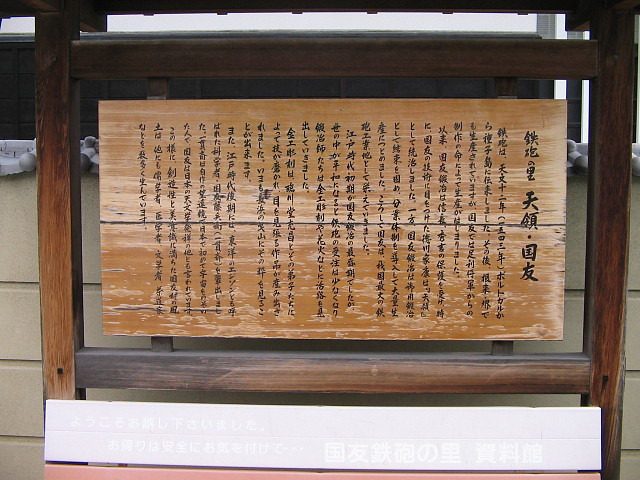 鉄砲の里 天領 国友
鉄砲は、天文十二年(一五四三年)ポルトガルか
ら種子島に伝来しました。その後、根来、堺で
も生産されていますが、国友では足利将軍からの
制作の命によって生産がはじまりました。
以来、国友鍛冶は信長、秀吉の保護を受け、特
に、国友の技術に目をつけた徳川家康は「天領」
として統治しました。一方、国友鍛冶は御用鍛冶
として結束を固め、分業体制を導入して大量生
産につとめました。こうして国友は、我国最大の鉄
砲工業地として栄えていきました。
江戸時代初期が国友鍛冶の最盛期でしたが、
世の中が平和になると鉄砲の受注は少なくなり
鍛冶師たちは金工彫刻や花火などに活路を見
出していきました。
金工彫刻は、臨川堂充昌とその弟子たちに
よって技が磨かれ、目を見張る作品が産み出さ
れました。いまも長浜の曳山にその粋を見るこ
とが出来ます。
また、江戸時代後期には、東洋のエジソンとも呼
ばれた科学者、国友藤兵衛(一貫斎)を輩出しまし
た。一貫斎は自作の望遠鏡で日本で初めて宇宙をのぞい
た人で国友は日本の天文学発祥の地とも言われています。
この様に、創造性と美意識に満ちた国友村の風
土は、他にも儒学者、医学者、文学者、茶道家
などを数多く生んでいます。
ようこそお越し下さいました。
お帰りは安全にお気を付けて・・・
国友鉄砲の里 資料館